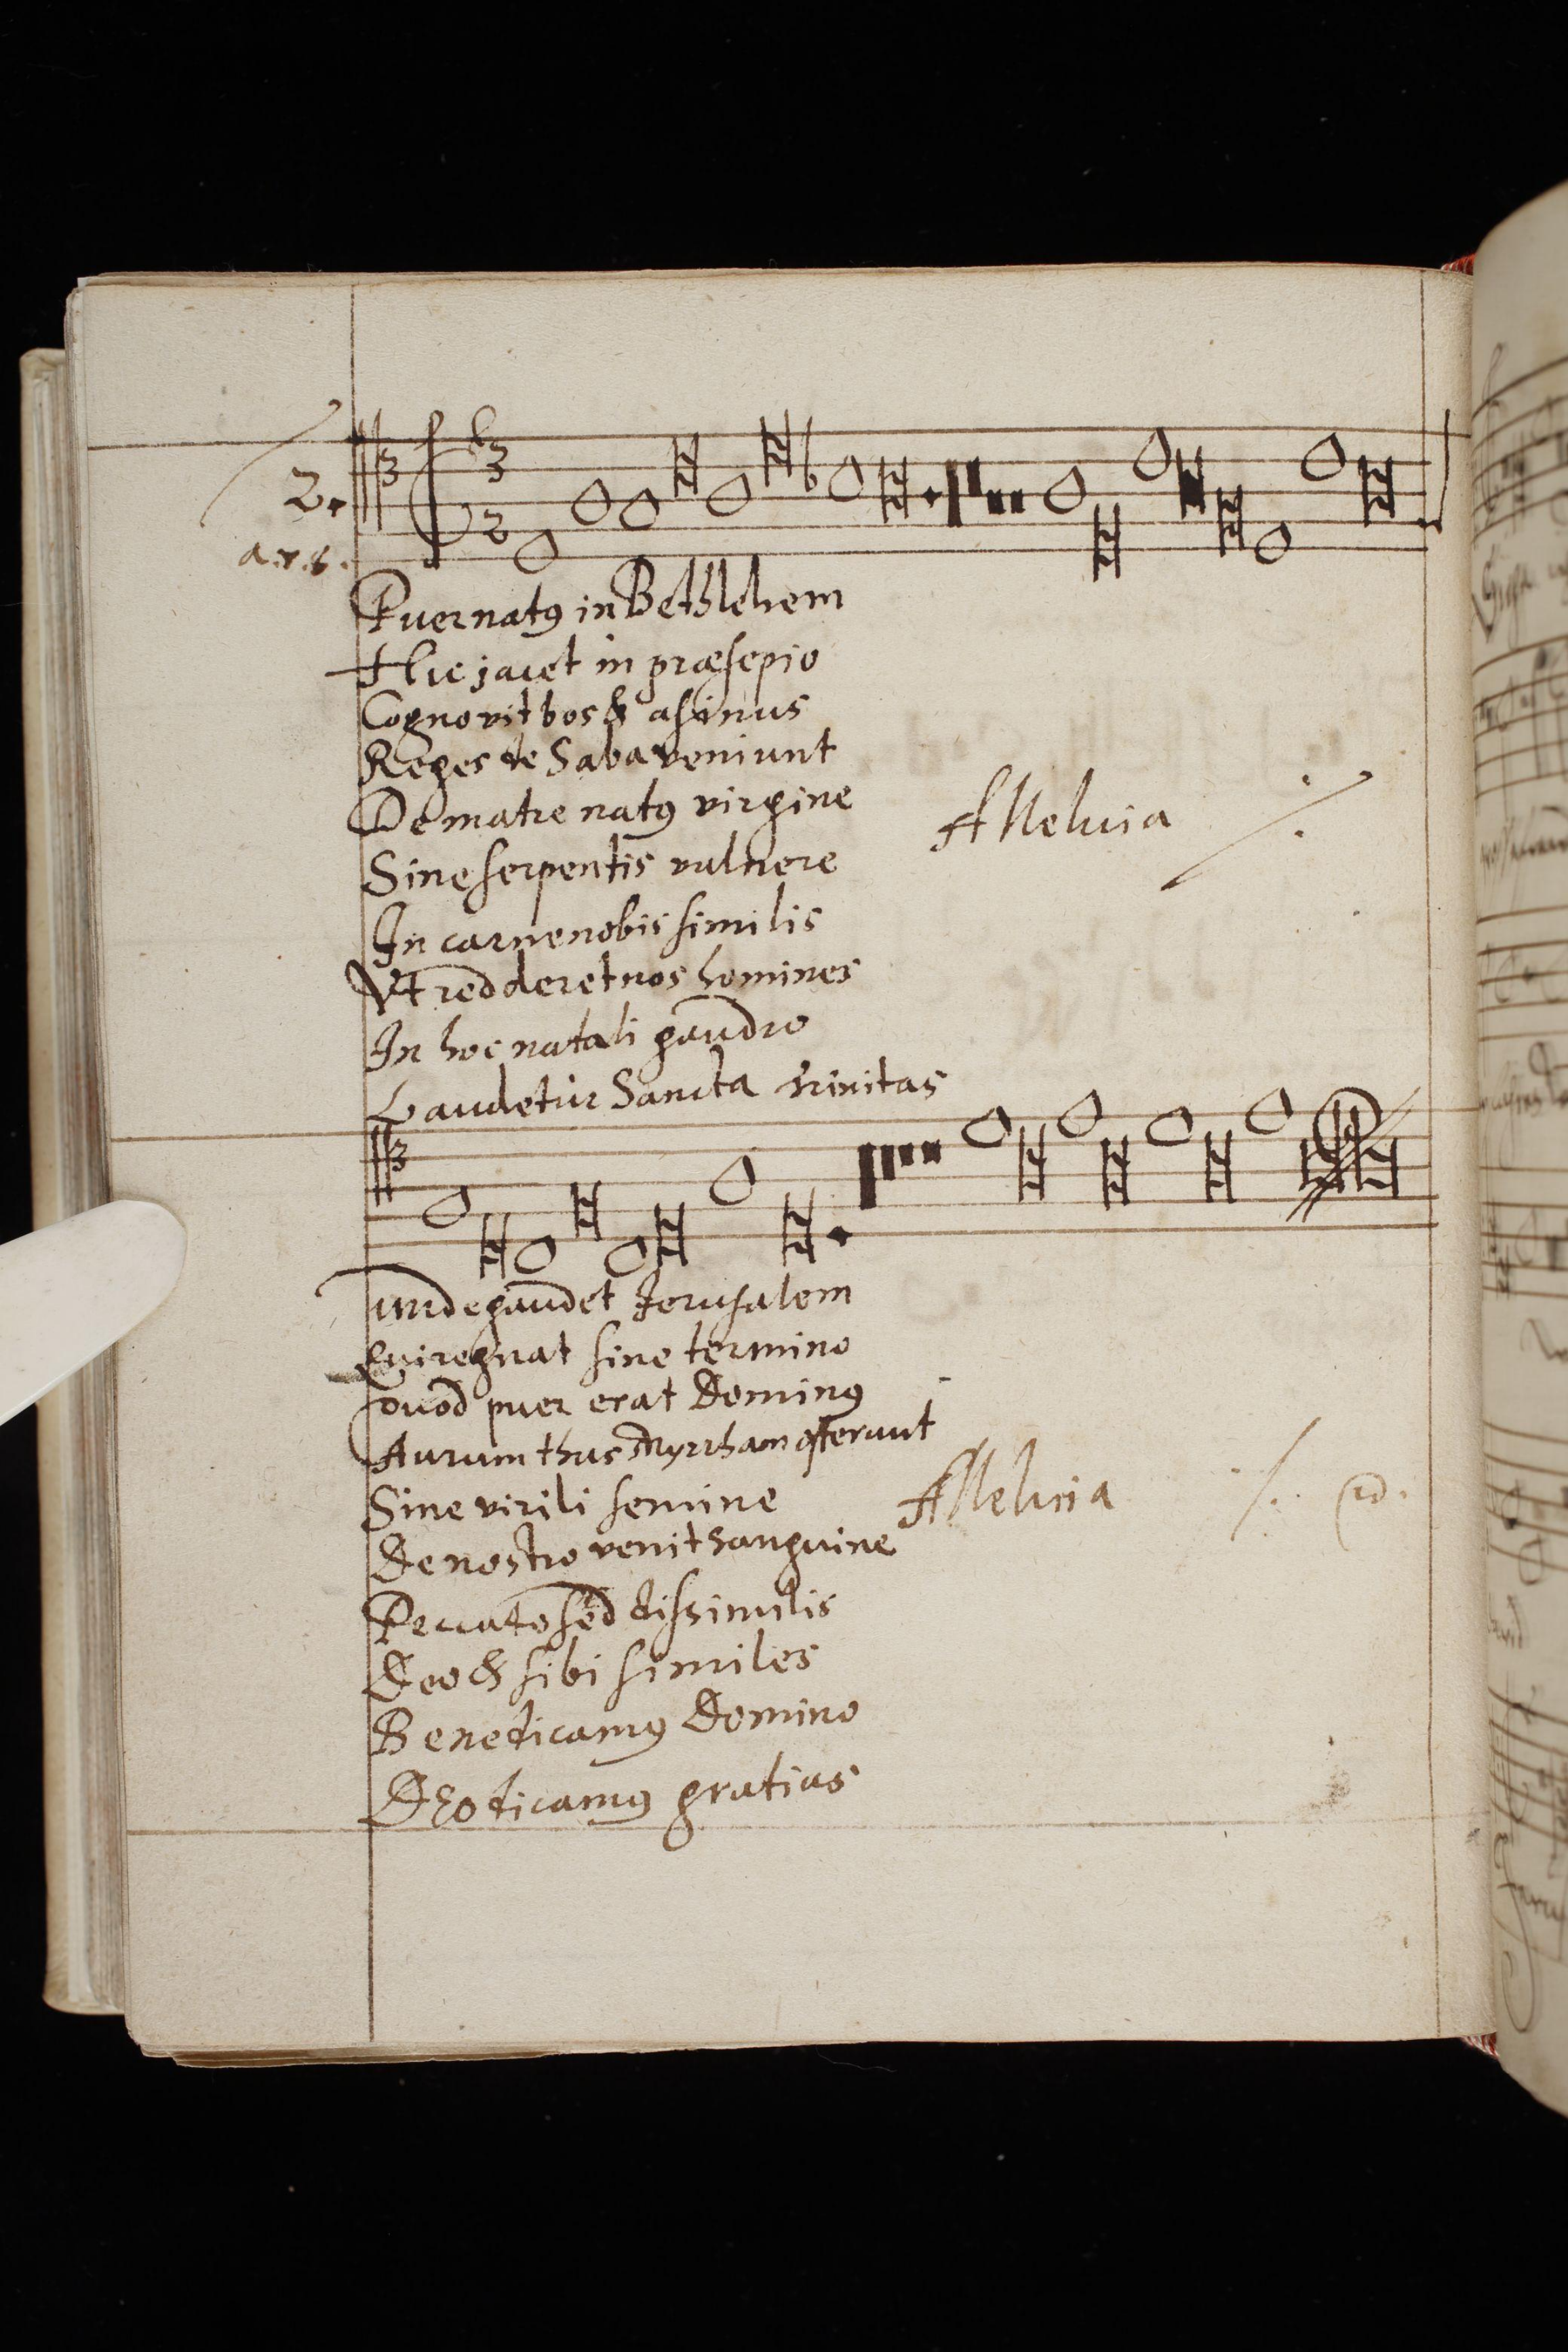 2.
a.r.6.
3
2
Puer natꝰ in Bethlehem
Hic jacet in præsepio
Cognovit bos & asinus
Reges de Saba veniunt
De matre natꝰ virgine
Alleluia ·/.
Sine serpentis vulnere
In carne nobis similis
Vt redderet nos homines
In hoc natali gaudio
Laudetur Sancta trinitas
Unde gaudet Jerusalem
Qui regnat sine termino
Quod puer erat Dominꝰ
Aurum thus Myrrham offerunt
Sine virili semine
Alleluia ·/. id.
De nostro venit sanguine
Peccato sed dissimilis
Deo & sibi similes
Benedicamꝰ Domino
Deo dicamꝰ gratias